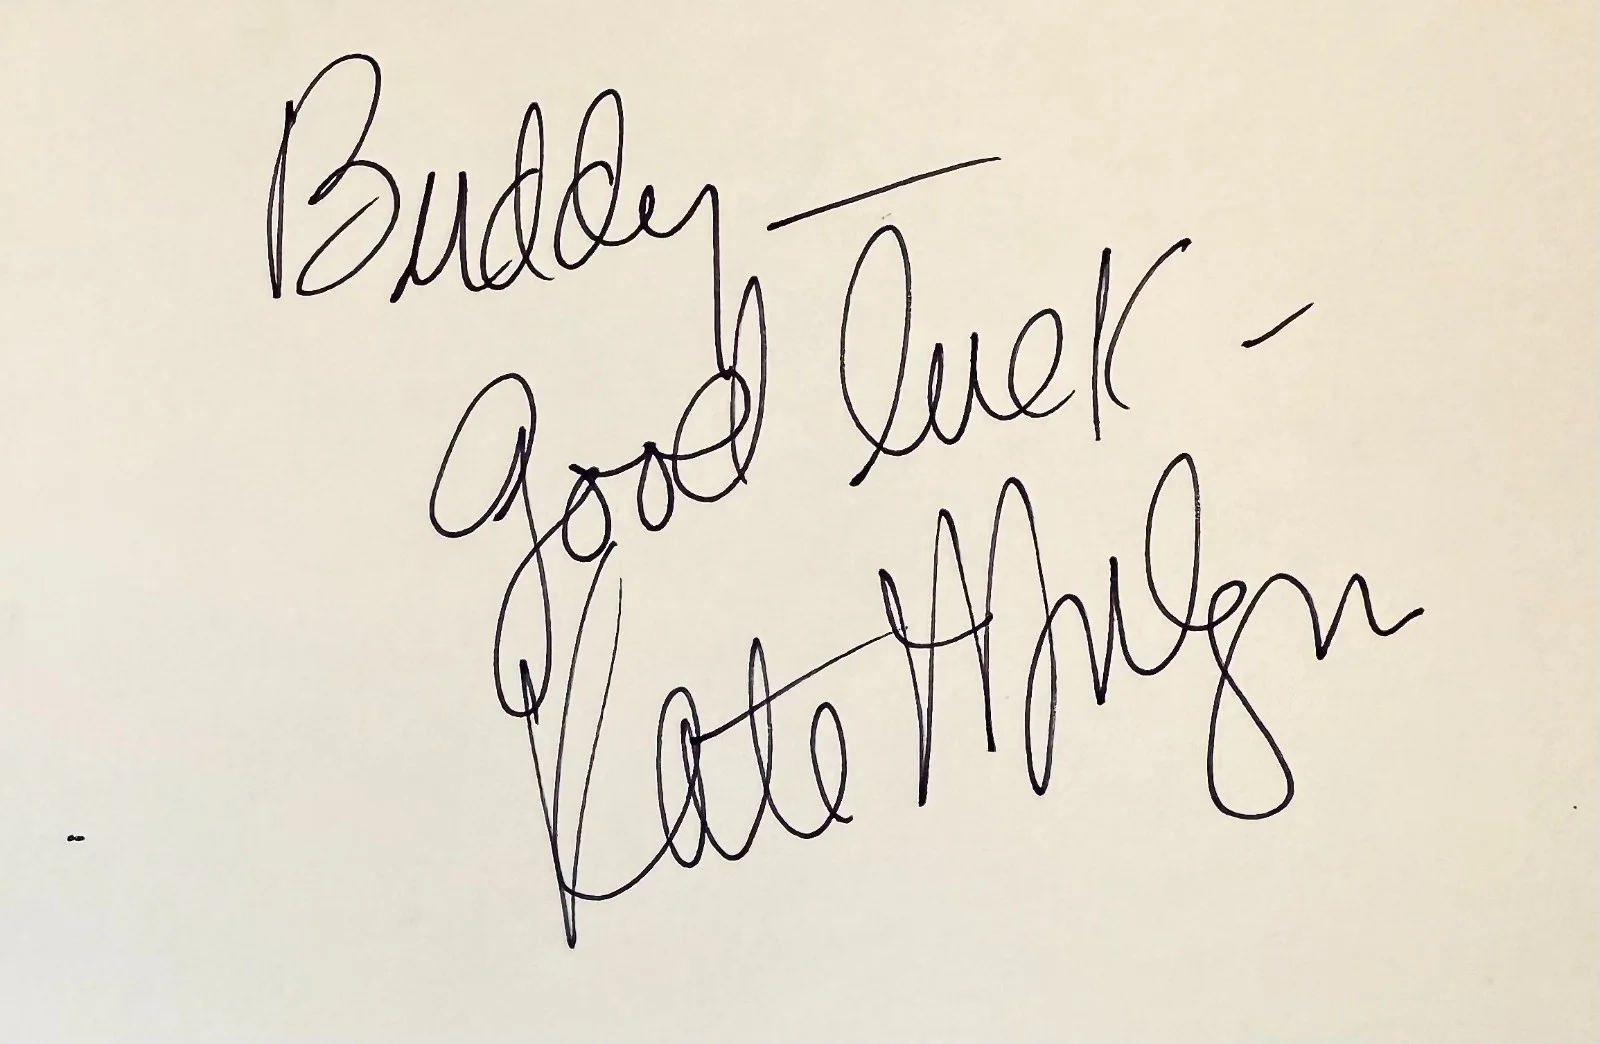 Buddy —
good luck -
Kate Mulgrew